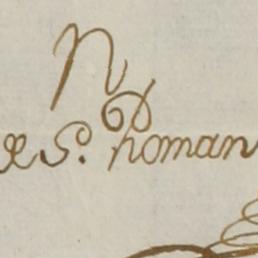 N
de S. Roman